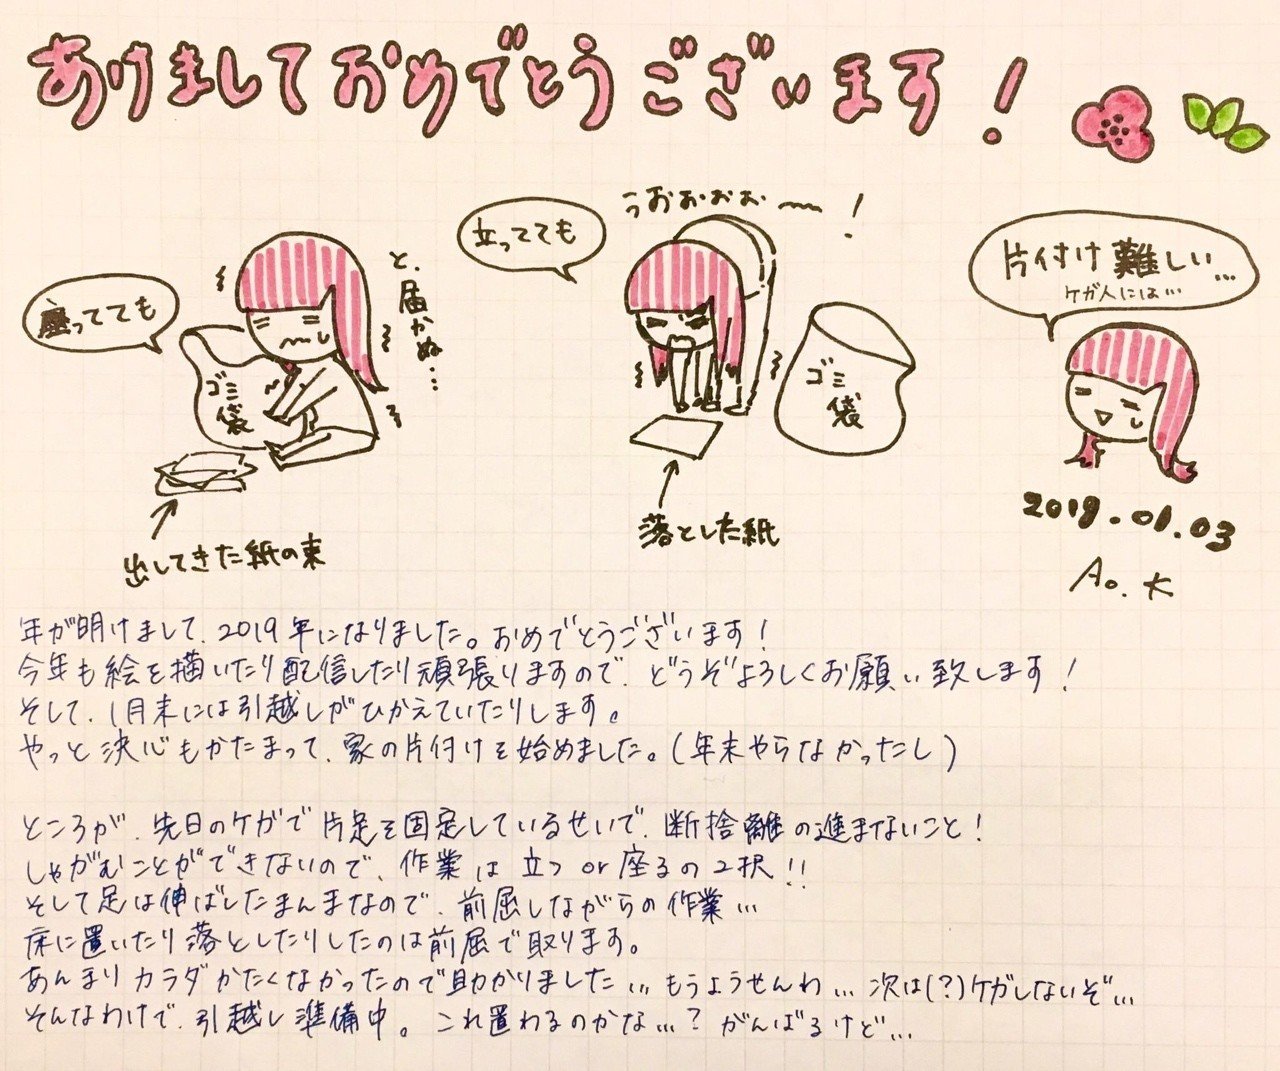 あけましておめでとうございます!
座ってても
と、届かぬ…
ゴミ袋
出してきた紙の束
立ってても
うおぉぉぉ〜!
ゴミ袋
落とした紙
片付け難しい…
ケガ人には…
2019.01.03
Ao.K
年が明けまして、2019年になりました。おめでとうございます!
今年も絵を描いたり配信したり頑張りますので、どうぞよろしくお願い致します!
そして、1月末には引越しがひかえていたりします。
やっと決心もかたまって、家の片付けを始めました。(年末やらなかったし)
ところが、先日のケガで片足を固定しているせいで、断捨離の進まないこと!
しゃがむことができないので、作業は立つor座るの2択!!
そして足は伸ばしたまんまなので、前屈しながらの作業…
床に置いたり落としたりしたのは前屈で取ります。
あんまりカラダかたくなかったので助かりました… もうようせんわ… 次は(?)ケガしないぞ…
そんなわけで、引越し準備中。これ置わるのかな…?がんばるけど…